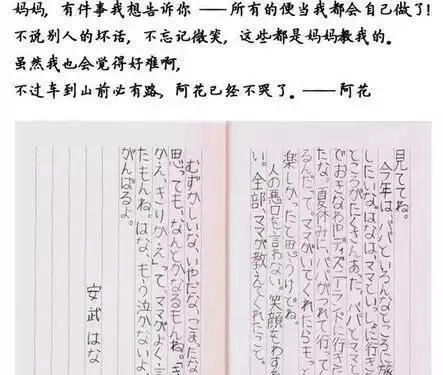 妈妈，有件事我想告诉你 ——所有的便当我都会自己做了！
不说别人的坏话，不忘记微笑，这些都是妈妈教我的。
虽然我也会觉得好难啊，
不过车到山前必有路，阿花已经不哭了。——阿花
見ててね。
今年は、パパといろんなところに旅
したいな。はなは、ママといっしょに行き
ところがたくさんあった。パパとママと
でおきなわやディズニーランドに行きた
たな。夏休みに、パパがつれて行って
るんだって。ママがいてくれたらもっと
楽しかったと思うけどね。
人の悪口を言わない。笑顔もわすれ
い。全部、ママが教えてくれたこと。
むずかしいな、いやだな、こまったな
思っても、なんとかなるもんね。き
かえ、きりかえって、ママがよく言
たもんね。はな、もう泣かないよ。
がんばるよ。
安武はな